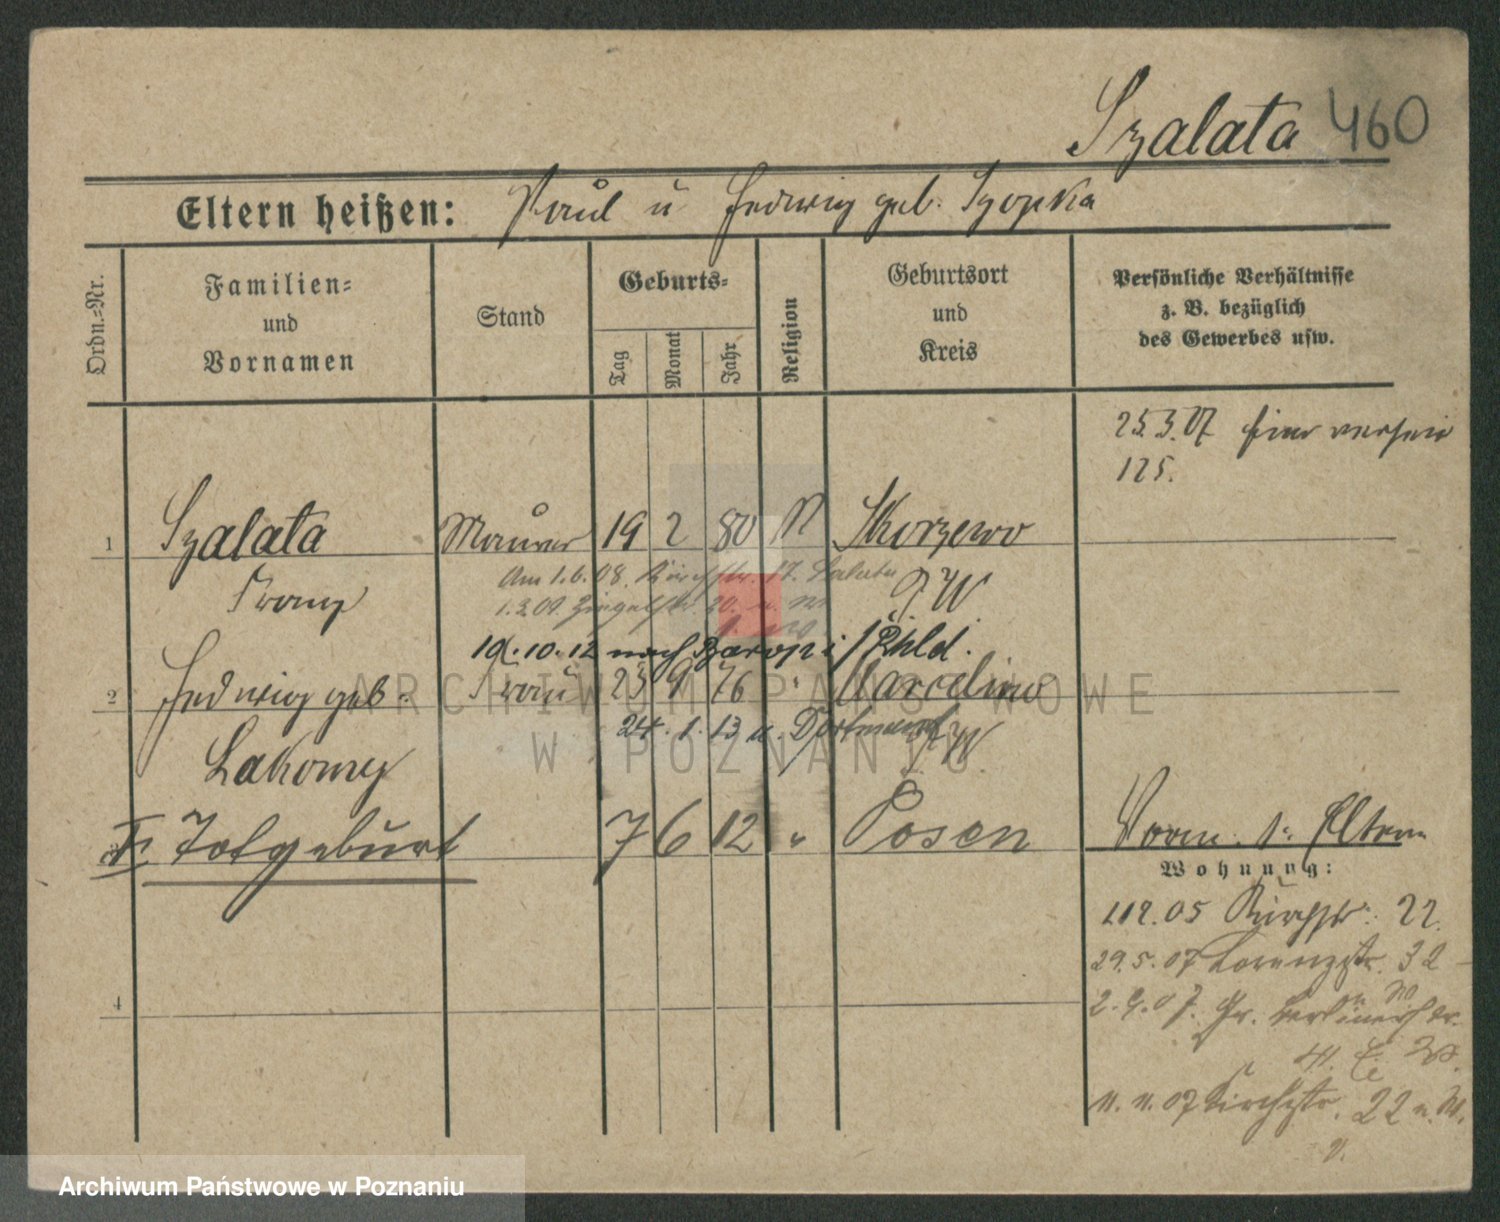 Szalata 460
Eltern heißen: Paul u Hedwig geb. Szopka
Ordn.=Nr.
Familien=
und
Vornamen
Stand
Geburts=
Tag
Monat
Jahr
Religion
Geburtsort
und
Kreis
Persönliche Verhältnisse
z. B. bezüglich
des Gewerbes usw.
25.3.07
125.
1 Szalata Maurer 19 2 80 Skorzewo
Franz P. W
Am 1.6.08. 17.
1.3.09. 20.
19.10.12 nach Barop i/
2 Hedwig geb. Frau 23 9 76 " Marcelino
24.1.13 Dortmund P. W
Lakomy
Totgeburt 7 6 12 " Posen Eltern
Wohnung:
05 22.
29.5.07 Lorenzstr. 32
2.9.07. Gr. Berlinerstr.
4
11.11.07 Kirchstr. 22
ARCHIWUM PAŃSTWOWE
W POZNANIU
Archiwum Państwowe w Poznaniu